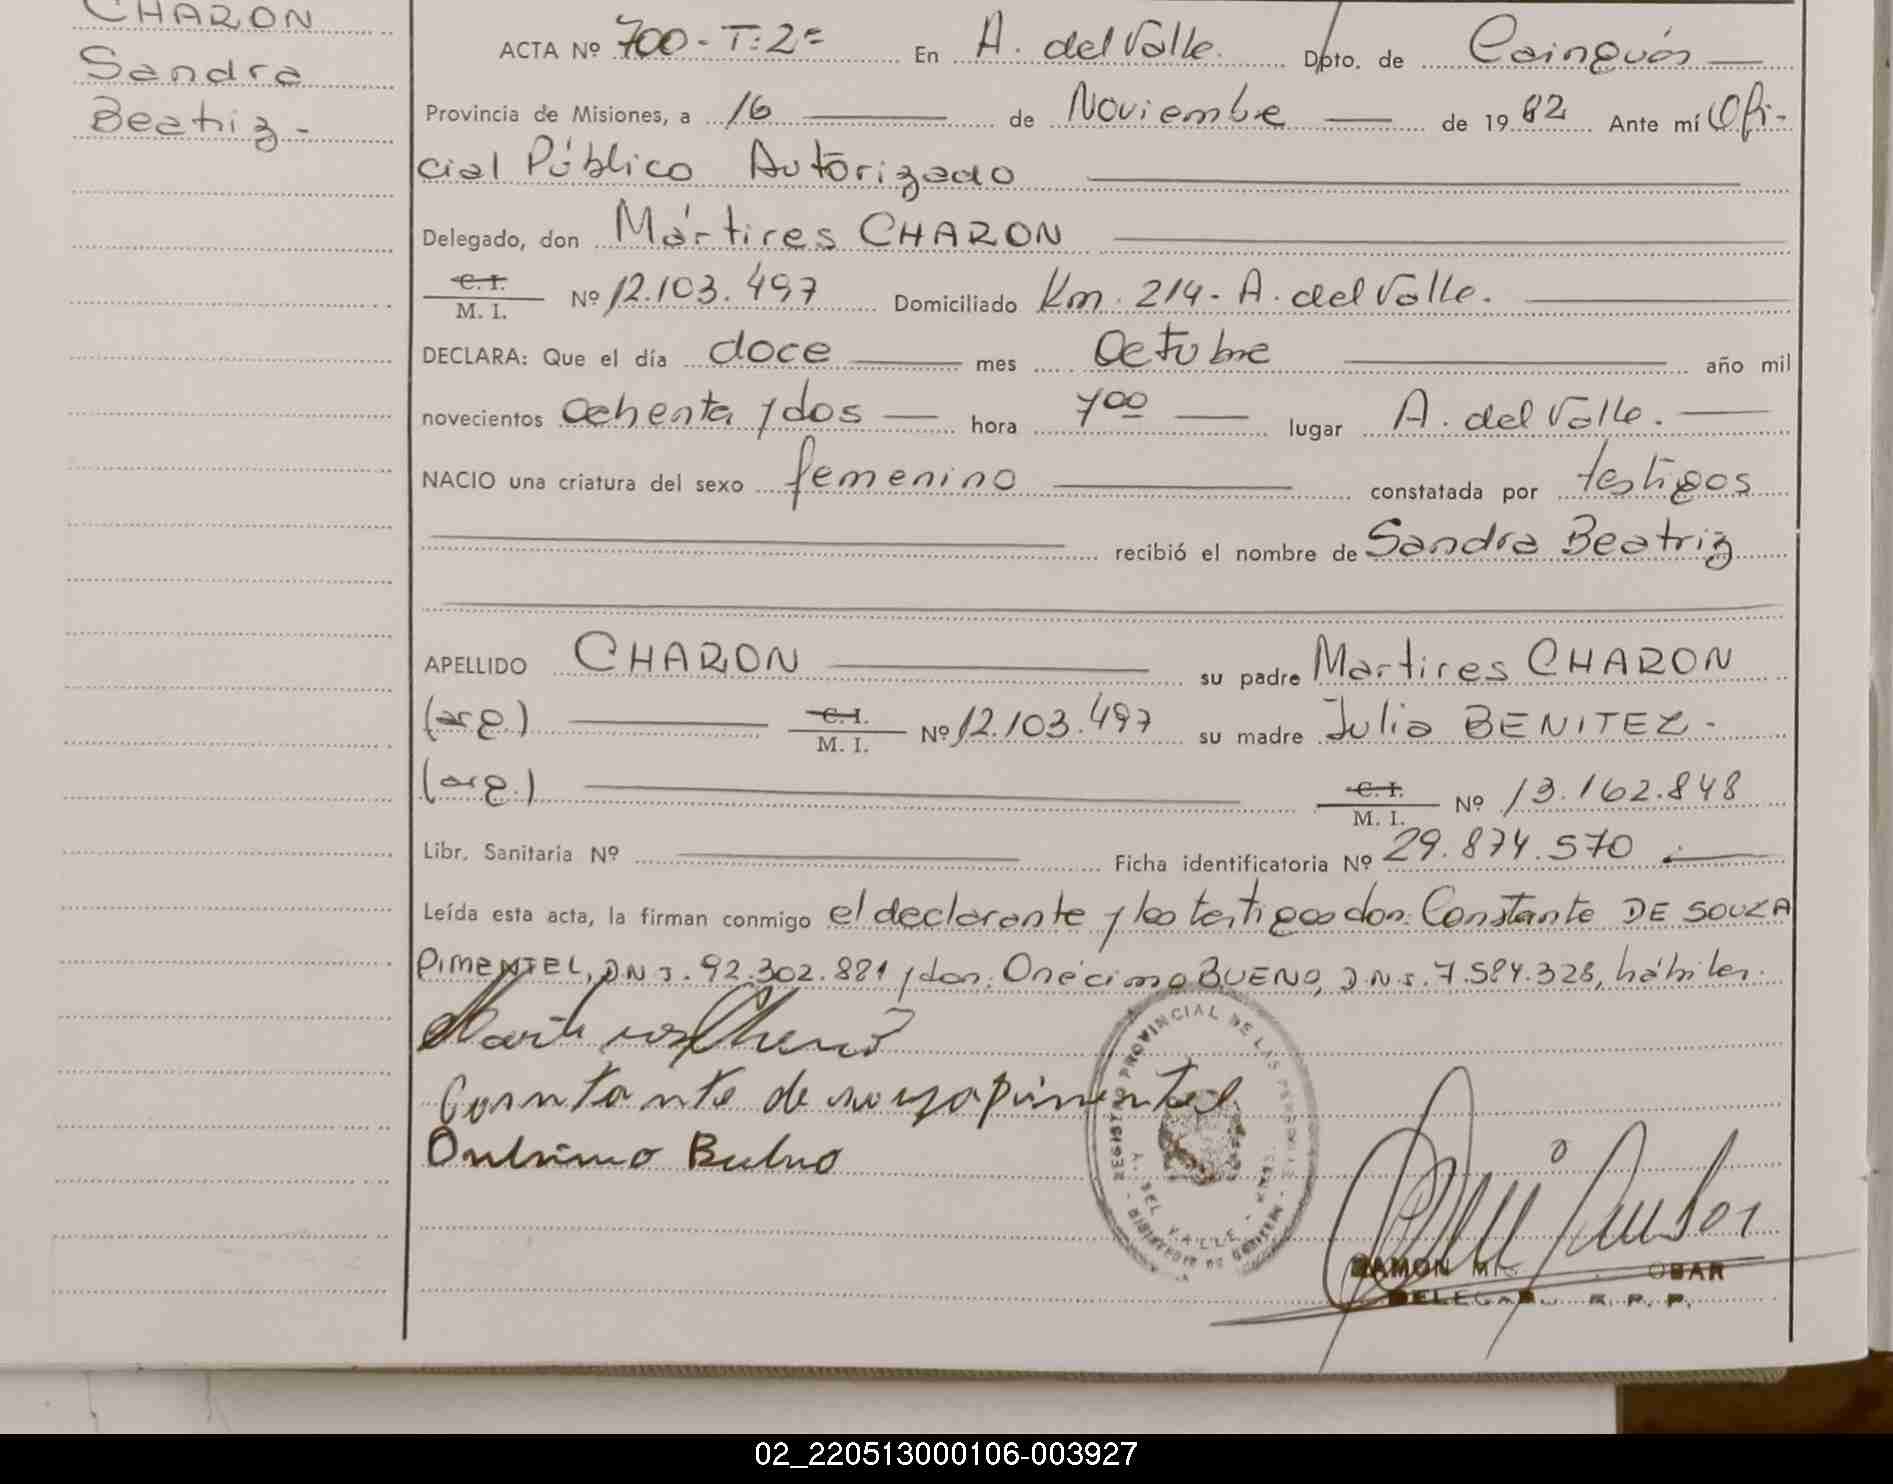 CHARON
Sandra
Beatriz -
ACTA Nº 700 - T: 2º En A. del Valle. Dpto. de Cainguás
Provincia de Misiones, a 16 de Noviembre de 1982 Ante mí Ofi-
cial Público Autorizado
Delegado, don Mártires CHARON
C. I.
M. I. Nº 12.103.497 Domiciliado Km. 214 - A. del Valle.
DECLARA: Que el día doce mes Octubre año mil
novecientos Ochenta y dos hora 7 00 lugar A. del Valle.
NACIO una criatura del sexo femenino constatada por testigos
recibió el nombre de Sandra Beatriz
APELLIDO CHARON su padre Martires CHARON
(arg.) C. I.
M. I. Nº 12.103.497 su madre Julia BENITEZ -
(arg.) C. I.
M. I. Nº 13.162.848
Libr. Sanitaria Nº Ficha identificatoria Nº 29.874.570
Leída esta acta, la firman conmigo el declarante y los testigos don: Constante DE SOUZA
PIMENTEL, D.N.I. 92.302.881 y don: Onécimo BUENO, D.N.I. 7.584.328, hábiles.
Constante de souza pimentel
Onesimo Bueno
REGISTRO PROVINCIAL DE LAS PERSONAS
A. DEL VALLE
RAMON OBAR
DELEGADO R. P. P.
02_220513000106-003927